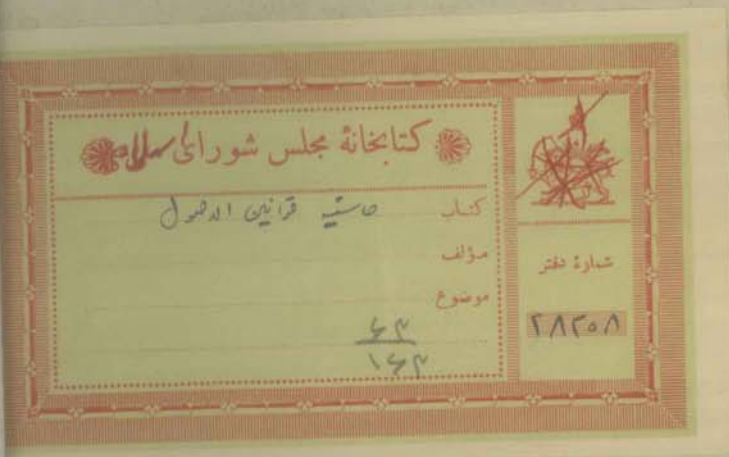 کتابخانهٔ مجلس شورای اسلامی
کتاب حاشیه قوانین الاصول
مؤلف
موضوع
شمارهٔ دفتر
۲۸۲۵۸